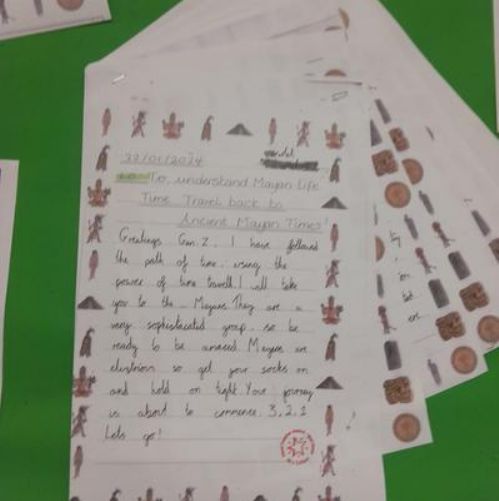 22/01/2024
To understand Mayan Life
Time Travel back to
Ancient Mayan Times!
Greetings Gen.Z. I have followed
the path of time. using the
power of time travell. I will take
you to the Mayans. They are a
very sophisticated group so be
ready to be amazed Mayans are
so get your socks on
and hold on tight. Your journey
is about to commence. 3,2,1
Lets go!